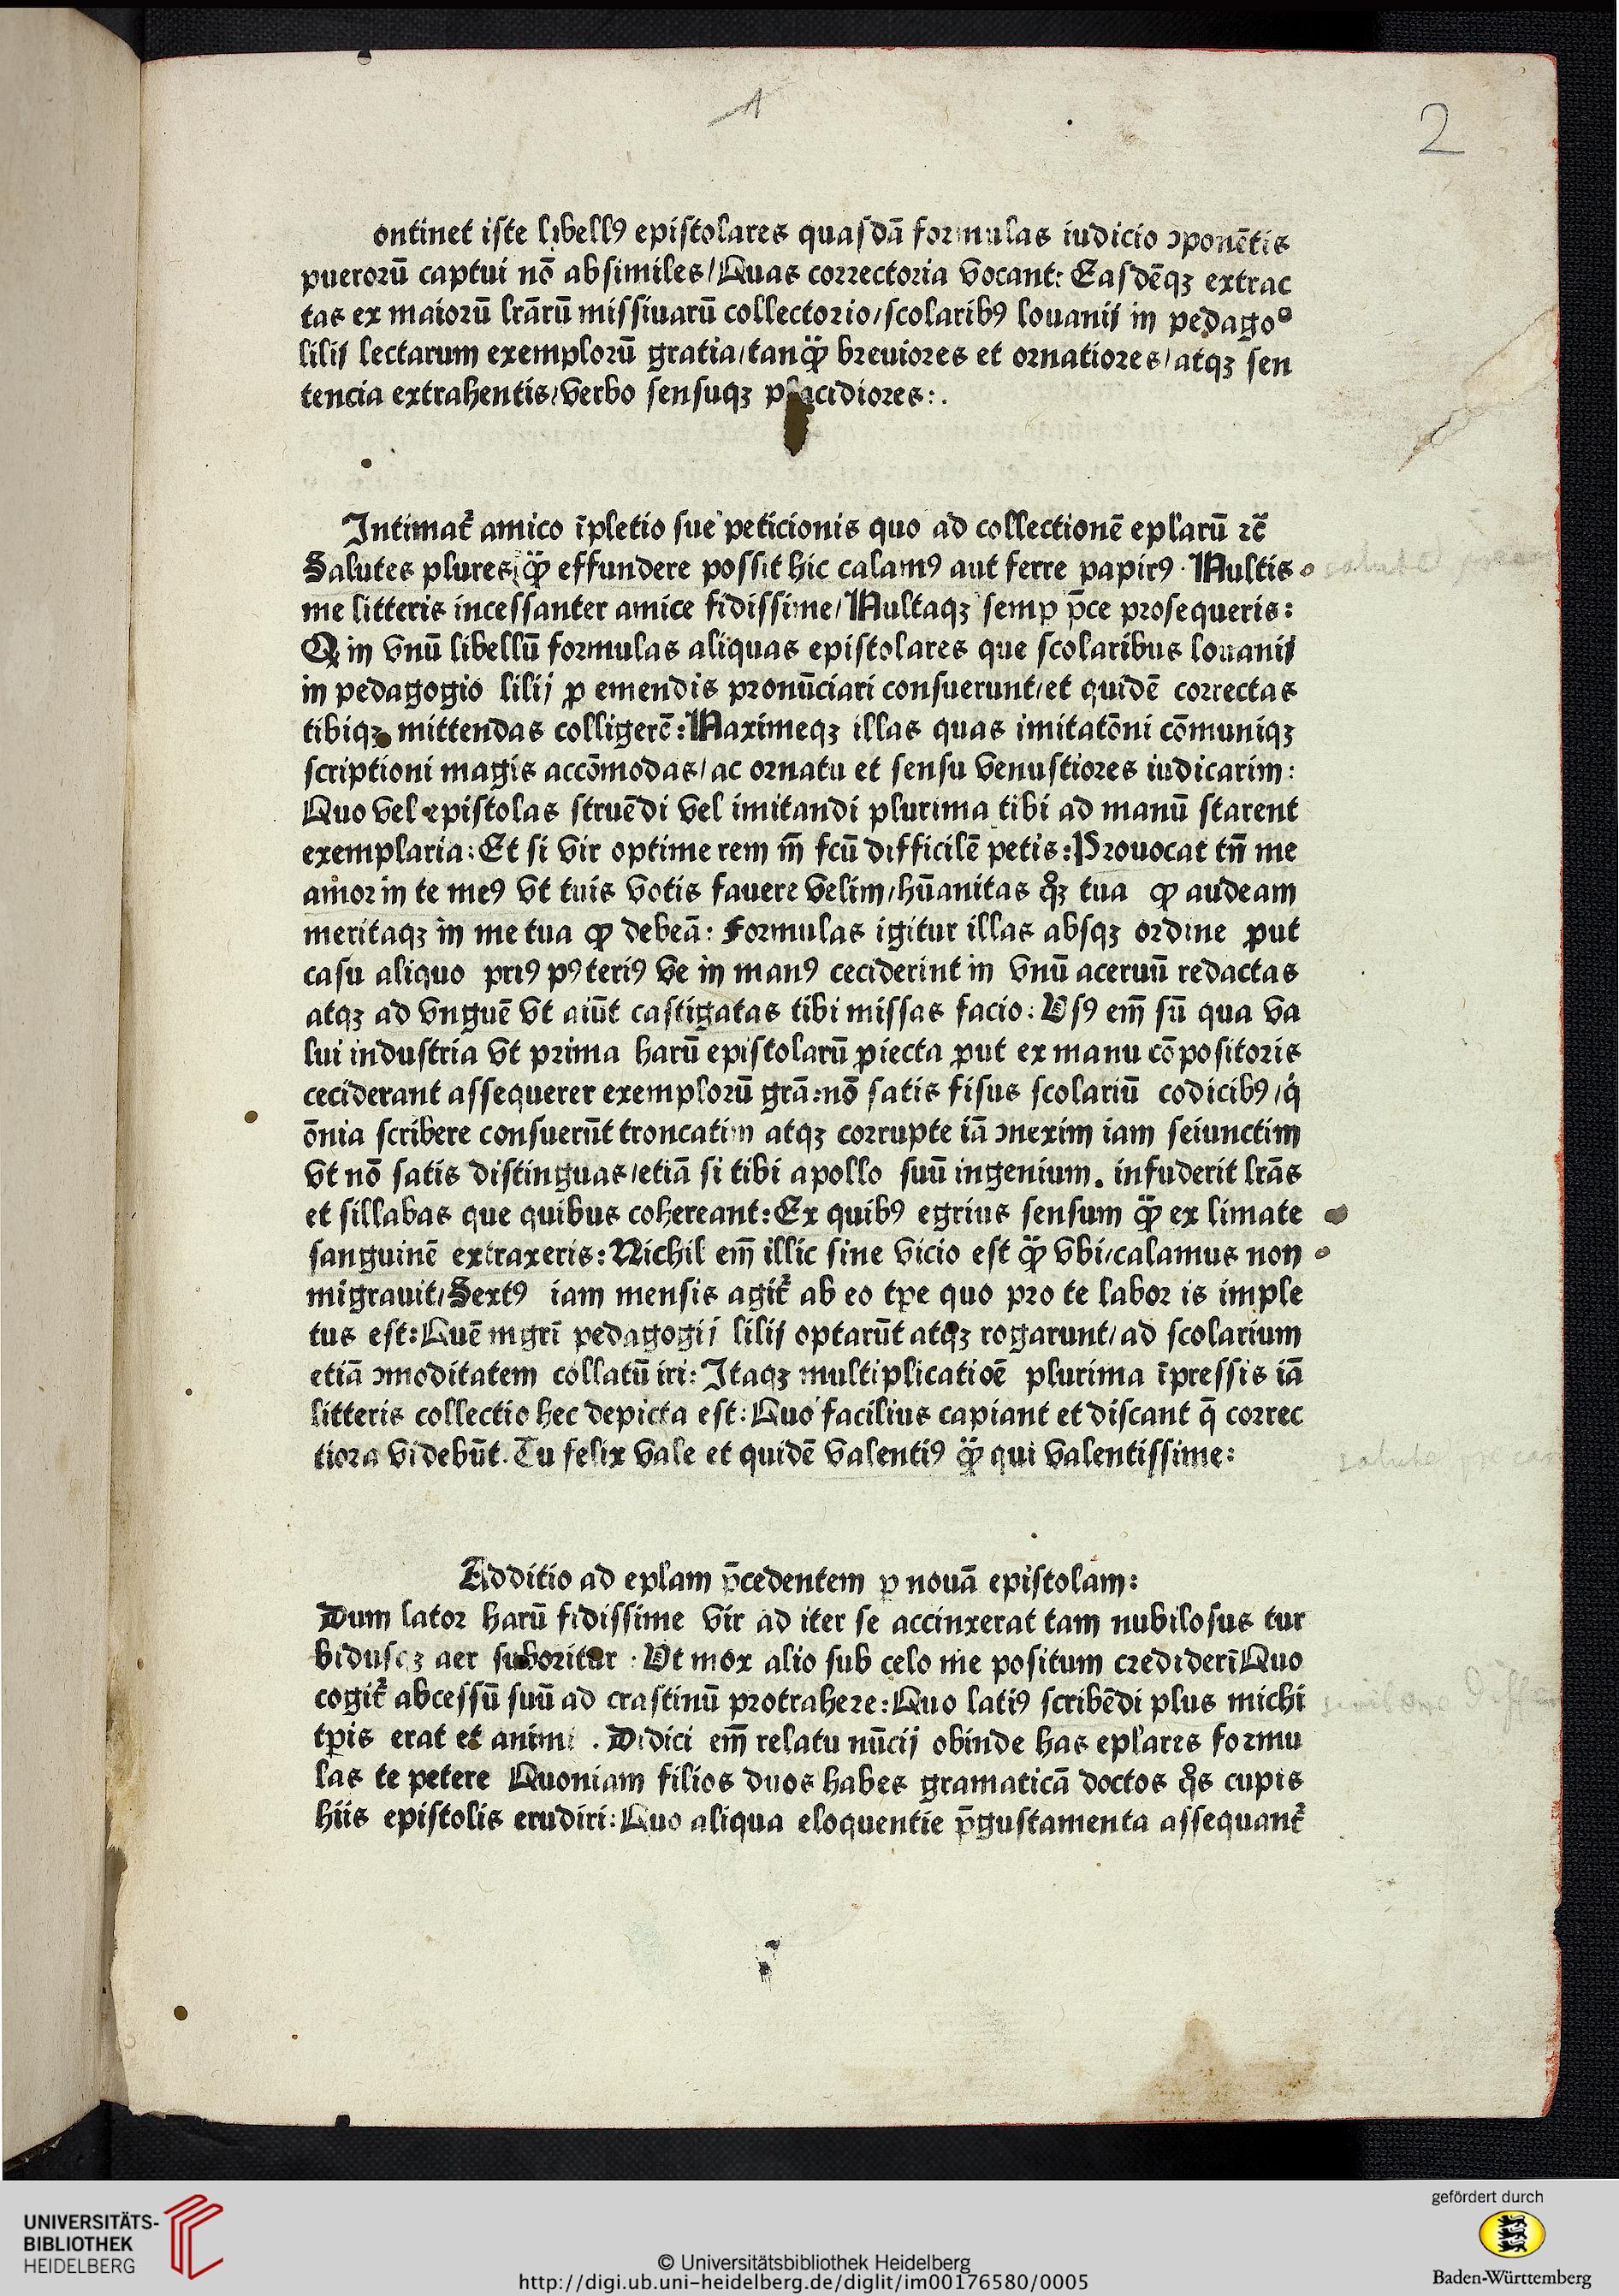 1
2
ontinet iste libellꝰ epistolares quasdā formulas iudicio ↄponētis
puerorū captui nō absimiles/Quas correctoria vocant: Easdēqꝫ extrac
tas ex maiorū lrārū missiuarū collectorio/scolaribꝰ louanij in pedagoᵒ
lilij lectarum exemplorū gratia/tanqꝫ̈ breuiores et ornatiores/atqꝫ sen
tencia extrahentis/verbo sensuqꝫ placidiores:.
Intimat᷑ amico īpletio sue peticionis quo ad collectionē eplarū ꝛc̄
Salutes plures/qꝫ̈ effundere possit hic calamꝰ aut ferre papirꝰ. Multis
me litteris incessanter amice fidissime/Multaqꝫ semꝑ p̄ce prosequeris:
Q in vnū libellū formulas aliquas epistolares que scolaribus louanij
in pedagogio lilij ꝓ emendis pronūciari consuerunt/et quidē correctas
tibiqꝫ mittendas colligerē: Maximeqꝫ illas quas imitatōni cōmuniqꝫ
scriptioni magis accōmodas/ac ornatu et sensu venustiores iudicarim:
Quo vel epistolas struēdi vel imitandi plurima tibi ad manū starent
exemplaria: Et si vir optime rem m̄ fcū difficilē petis: Prouocat tn̄ me
amor in te meꝰ vt tuis votis fauere velim/hūanitas qͦꝫ tua ꝙ audeam
meritaqꝫ in me tua ꝙ debeā: Formulas igitur illas absqꝫ ordine ꝓut
casu aliquo priꝰ pꝰteriꝰ ve in manꝰ ceciderint in vnū aceruū redactas
atqꝫ ad vnguē vt aiūt castigatas tibi missas facio: Vsꝰ em̄ sū qua va
lui industria vt prima harū epistolarū ꝓiecta ꝓut ex manu cōpositoris
ceciderant assequerer exemplorū grā: nō satis fisus scolariū codicibꝰ/qͥ
ōnia scribere consuerūt troncatim atqꝫ corrupte iā ↄnexim iam seiunctim
vt nō satis distinguas/etiā si tibi apollo suū ingenium. infuderit lrās
et sillabas que quibus cohereant: Ex quibꝰ egrius sensum qꝫ̈ ex limate
sanguinē extraxeris: Nichil em̄ illic sine vicio est qꝫ̈ vbi/calamus non
migrauit/Sextꝰ iam mensis agit᷑ ab eo tꝑe quo pro te labor is imple
tus est: Quē mgrī pedagogij lilij optarūt atqꝫ rogarunt/ad scolarium
etiā ↄmoditatem collatū iri: Itaqꝫ multiplicatioē plurima īpressis iā
litteris collectio hec depicta est: Quo facilius capiant et discant q̄ correc
tiora videbūt. Tu felix vale et quidē valentiꝰ qꝫ̈ qui valentissime:
Additio ad eplam p̄cedentem ꝓ nouā epistolam:
Dum lator harū fidissime vir ad iter se accinxerat tam nubilosus tur
bidusqꝫ aer suboritur: Vt mox alio sub celo me positum crediderī Quo
cogit᷑ abcessū suū ad crastinū protrahere: Quo latiꝰ scribēdi plus michi
tꝑis erat et animi. Didici em̄ relatu nūcij obinde has eplares formu
las te petere Quoniam filios duos habes gramaticā doctos qͦs cupis
hiis epistolis erudiri: Quo aliqua eloquentie p̄gustamenta assequant᷑
UNIVERSITÄTS-
BIBLIOTHEK
HEIDELBERG
© Universitätsbibliothek Heidelberg
http://digi.ub.uni-heidelberg.de/diglit/im00176580/0005
gefördert durch
Baden-Württemberg